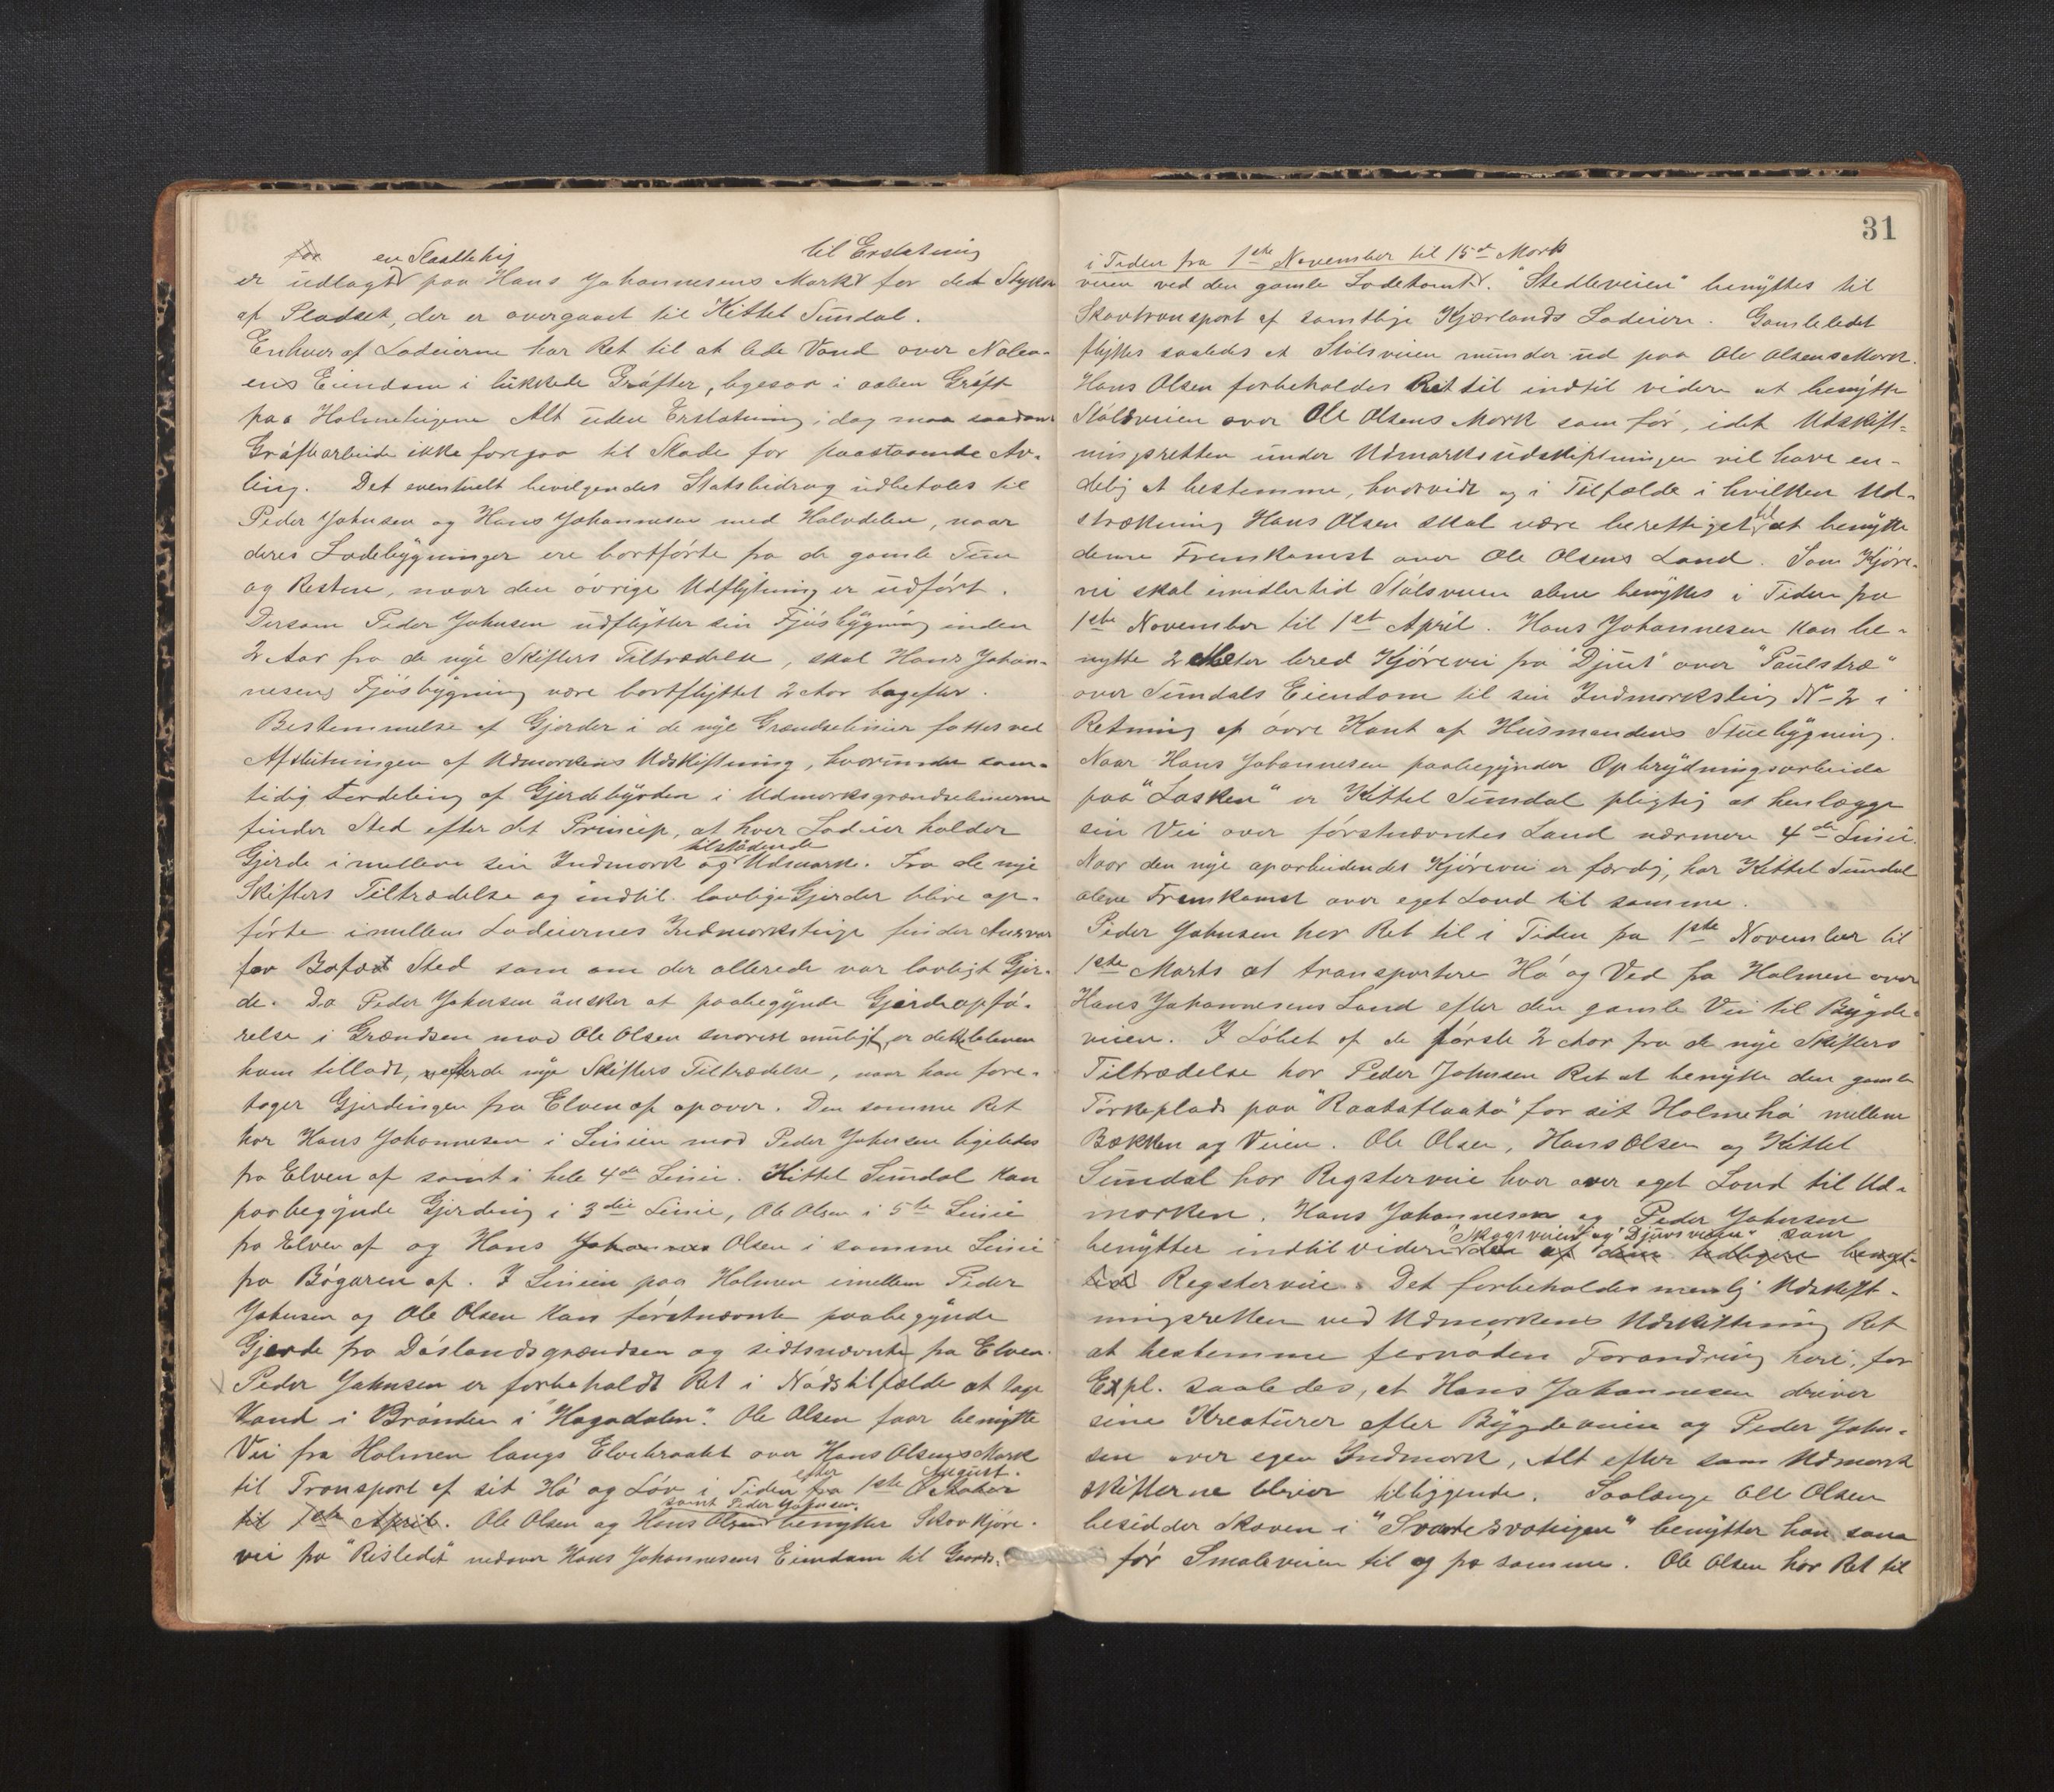 for en Slaatteteig til Erstatning
er udlagt paa Hans Johannesens Mark for det Stykke
af Pladset, der er overgaaet til Kittel Sundal.
Enhver af Lodeierne har Ret til at lede Vand over Nabo-
ens Eiendom i lukkede Grøfter, ligesaa i aaben Grøft
paa Holmeteigene Alt uden Erstatning, i dag maa saadant
Grøftearbeide ikke foregaa til Skade for paastaaende Av-
ling. Det eventuelt bevilgendes Statsbidrag udbetales til
Peder Johnsen og Hans Johannesen med Halvdelen, naar
deres Ladebygninger ere bortførte fra de gamle Tun
og Resten, naar den øvrige Udflytning er udført.
Dersom Peder Johnsen udflytter sin Fjøsbygning inden
2 Aar fra de nye Skifters Tiltrædelse, skal Hans Johan-
nesens Fjøsbygning være bortflyttet 2 Aar bagefter.
Bestemmelse af Gjerder i de nye Grændselinier fattes ved
Afslutningen af Udmarkens Udskiftning, hvorunder sam-
tidig Fordeling af Gjerdebyrden i Udmarksgrændselinierne
finder Sted efter det Princip, at hver Lodeier holder
tilstødende
Gjerde imellem sin Indmark og Udmark. Fra de nye
Skifters Tiltrædelse og indtil lovlige Gjerder blive op-
førte imellem Lodeiernes Indmarksteige finder Ansvar
for Bofæ Sted som om der allerede var lovligt Gjer-
de. Da Peder Johnsen ønsker at paabegynde Gjerdeopfø-
relse i Grændsen mod Ole Olsen snarest muligt, er dette bleven
ham tilladt, efter de nye Skifters Tiltrædelse, naar han fore-
tager Gjerdingen fra Elven af opover. Den samme Ret
har Hans Johannesen i Linien mod Peder Johnsen ligeledes
fra Elven af samt i hele 4de Linie. Kittel Sundal kan
paabegynde Gjerding i 3die Linie, Ole Olsen i 5te Linie
fra Elven af og Hans Johannes Olsen i samme Linie
fra Bøgaren af. I Linien paa Holmen imellem Peder
Johnsen og Ole Olsen kan førstnævnte paabegynde
Gjerde fra Døslandsgrændsen og sidstnævnte fra Elven.
Peder Johnsen er forbeholdt Ret i Nødstilfælde at tage
Vand i Brønden i "Hagadalen". Ole Olsen faar benytte
Vei fra Holmen langs Elvebraatet over Hans Olsens Mark
efter August.
til Transport af sit Hø og Løv i Tiden fra 1ste Oktober
samt Peder Johnsen
til 1ste April. Ole Olsen og Hans Olsen benytter Skovkjøre-
vei fra "Risledet" nedover Hans Johannesens Eiendom til Gaards-
31
i Tiden fra 1ste November til 15de Marts
veien ved den gamle Ladetomt. "Stedleveien" benyttes til
Skovtransport af samtlige Kjærlands Lodeiere. Gamleledet
flyttes saaledes at Stølsveien munder ud paa Ole Olsens Mark.
Hans Olsen forbeholdes Ret til indtil videre at benytte
Stølsveien over Ole Olsens Mark som før, idet Udskift-
ningsretten under Udmarksudskiftningen vil have en-
delig at bestemme, hvorvidt og i Tilfælde i hvilken Ud-
strækning Hans Olsen skal være berettiget til at benytte
denne Fremkomst over Ole Olsens Land. Som Kjøre-
vei skal imidlertid Stølsveien alene benyttes i Tiden fra
1ste November til 1st April. Hans Johannesen kan be-
nytte 2 Meter bred Kjørevei fra "Djuet" over "Paulstræ"
over Sundals Eiendom til sin Indmarksteig N-2 i
Retning af øvre Kant af Husmandens Stuebygning.
Naar Hans Johannesen paabegynder Opbrydningsarbeide
paa "Lasken" er Kittel Sundal pligtig at henlægge
sin Vei over førstnævntes Land nærmere 4de Linie.
Naar den nye oparbeidendes Kjørevei er færdig, har Kittel Sundal
alene Fremkomst over eget Land til samme.
Peder Johnsen har Ret til i Tiden fra 1ste November til
1ste Marts at transportere Hø og Ved fra Holmen over
Hans Johannesens Land efter den gamle Vei til Bygde-
veien. I Løbet af de første 2 Aar fra de nye Skifters
Tiltrædelse har Peder Johnsen Ret at benytte den gamle
Tørkeplads paa "Raataflaata" for sit Holmehø mellem
Bækken og Veien. Ole Olsen, Hans Olsen og Kittel
Sundal har Rægstervei hver over eget Land til Ud-
marken. Hans Johannesen og Peder Johnsen
"Skogsveien" og "Djuvsveien" som
benytter indtil videre den af dem tidligere benyt-
tede Rægstervei. Det forbeholdes menlig Udskift-
ningsretten ved Udmarkens Udskiftning Ret
at bestemme fornøden Forandring heri, for
Expl. saaledes, at Hans Johannesen driver
sine Kreaturer efter Bygdeveien og Peder John-
sen over egen Indmark, Alt efter som Udmark
skifterne bliver tilliggende. Saalænge Ole Olsen
besidder Skoven i "Svartesvateigen" benytter han som
før Smaleveien til og fra samme. Ole Olsen har Ret til